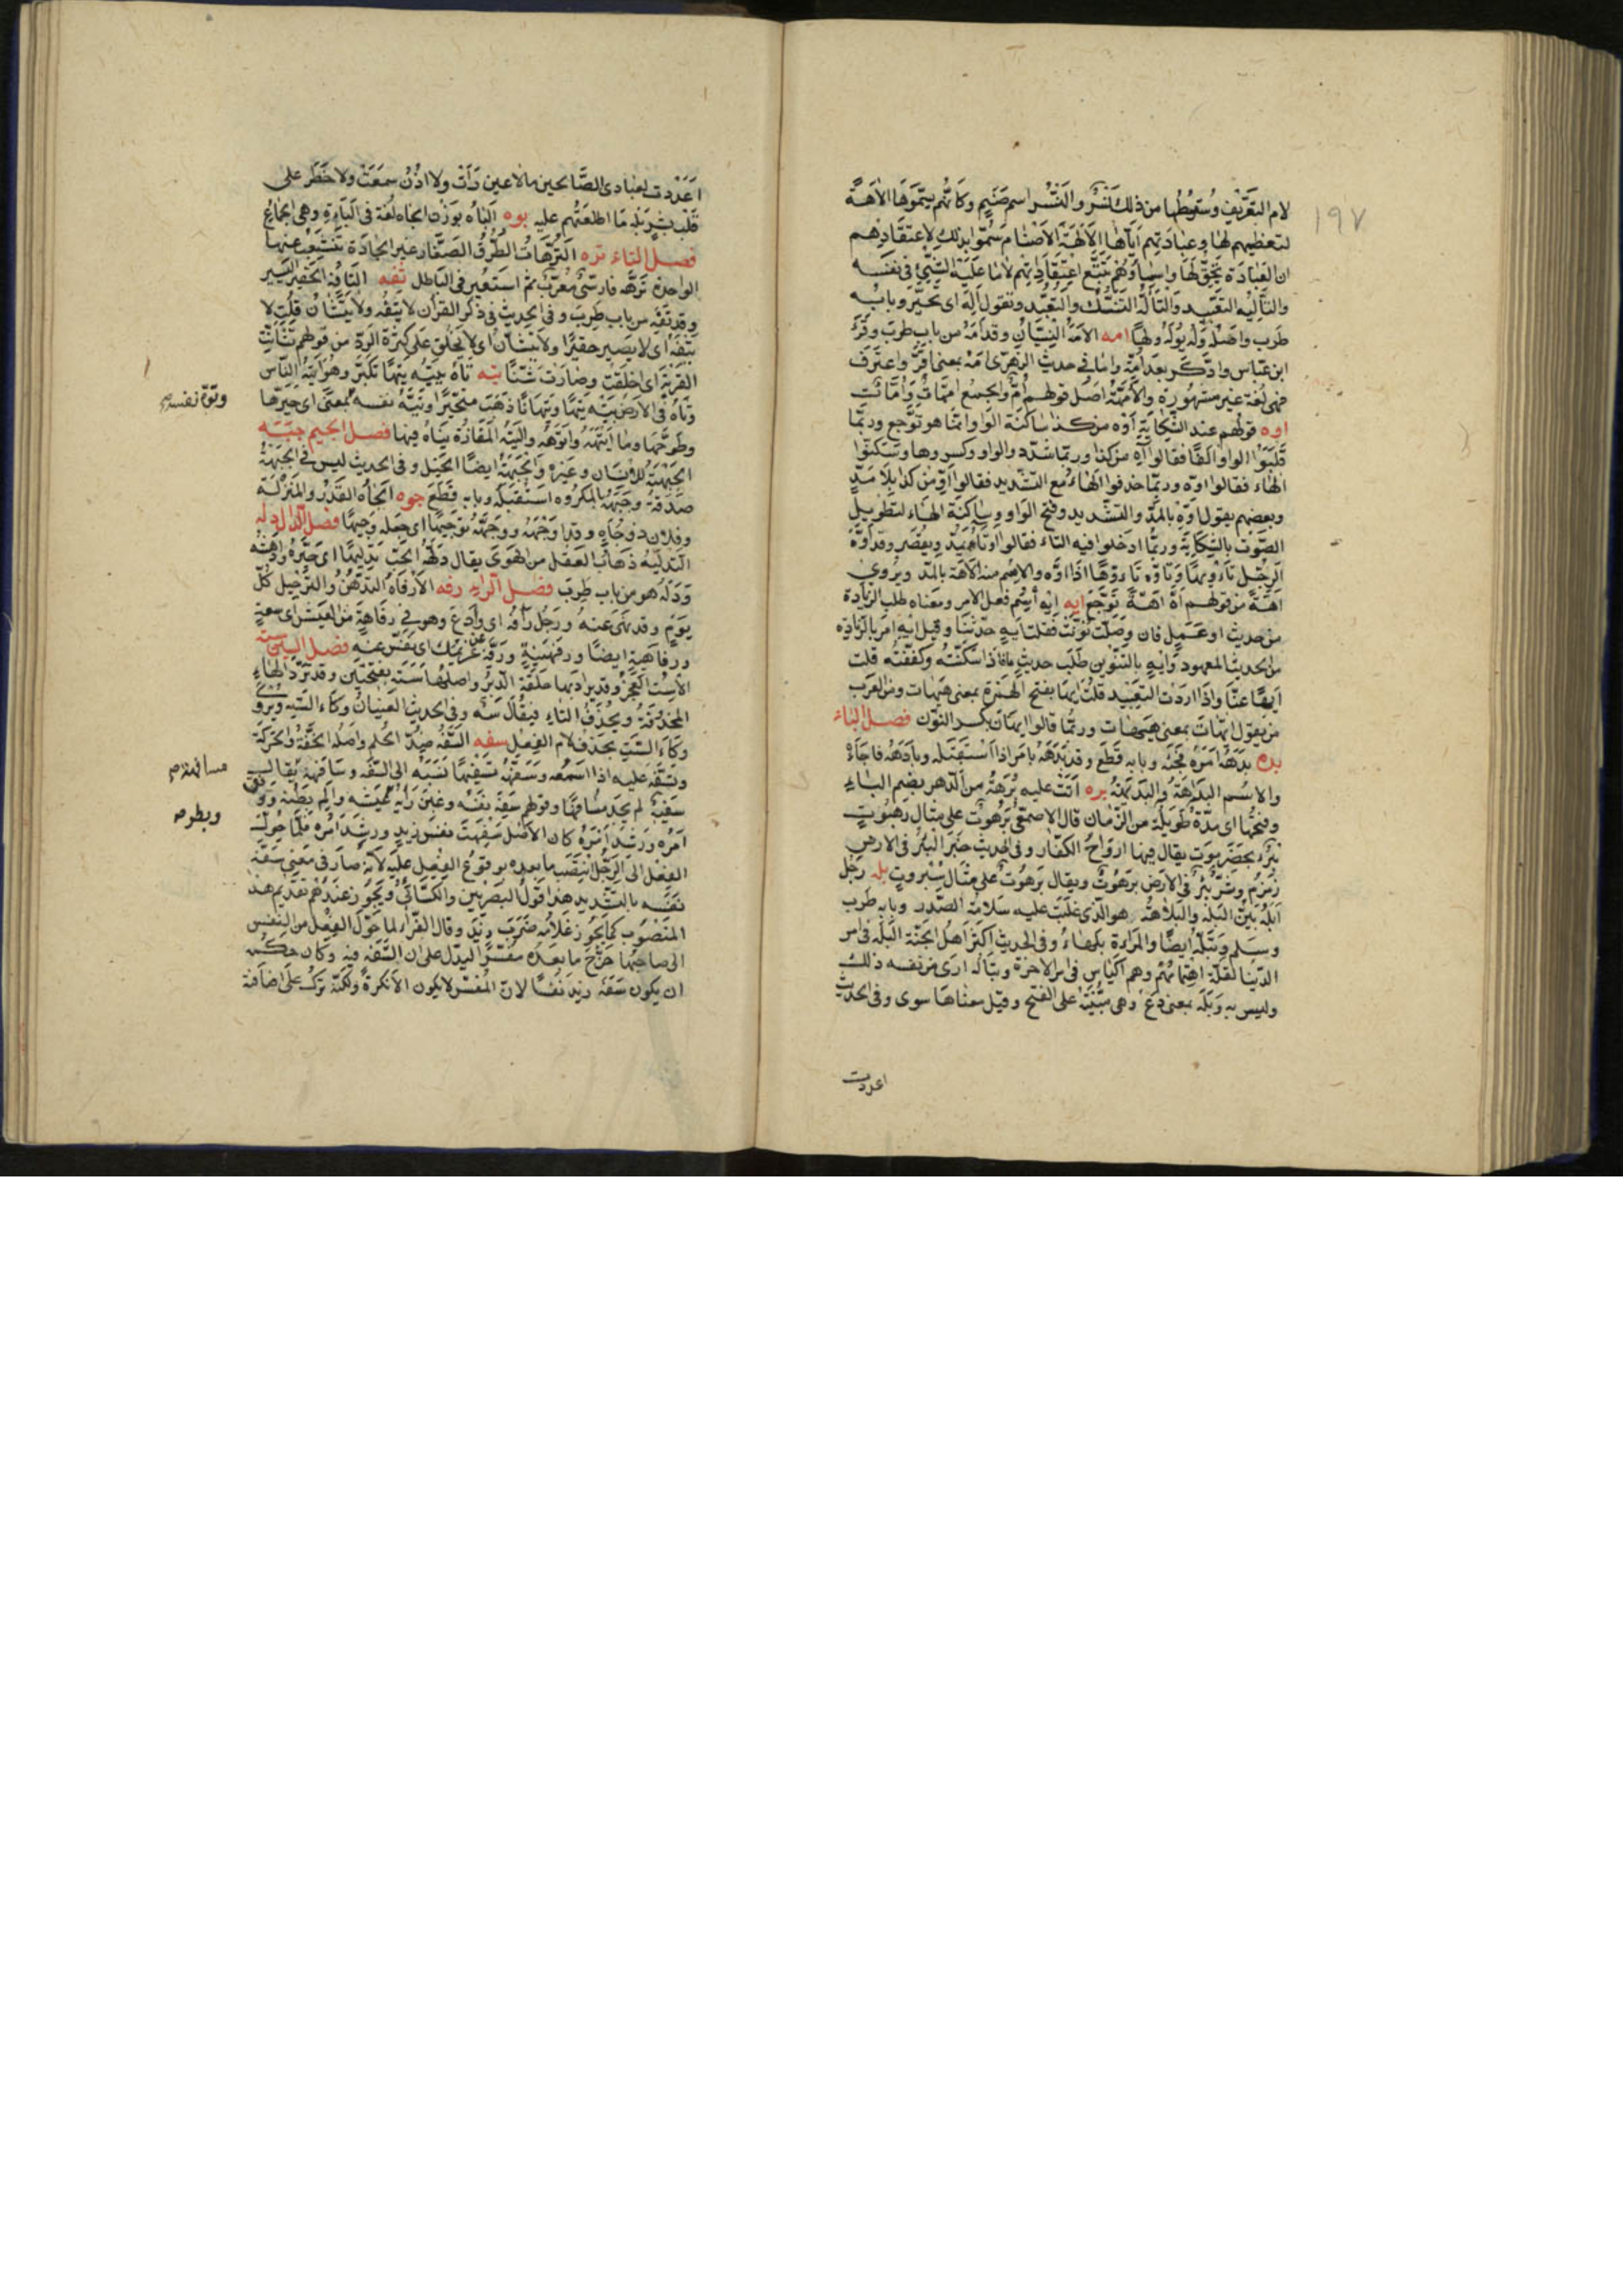 ١٩٧
لام التعريف وسقوطها من ذلك كنسر والنسر اسم صنم وكانهم سموها الاهة
لتعظيمهم لها وعبادتهم اياها الآلهة الاصنام سموا بذلك لاعتقادهم
ان العبادة تحق لها واسماؤهم تتبع اعتقاداتهم لا ما عليه الشئ في نفسه
والتأليه التعبيد والتأله التنسك والتعبد وتقول اله اى تحير وبابه
طرب واصله وله يوله ولها امه الامه النسيان وقد امه من باب طرب وقرء
ابن عباس وادكر بعد امه واما في حديث الزهرى امه بمعنى اقر واعترف
فهي لغة غير مشهورة والامهة اصل قولهم ام والجمع امهات وامات
اوه قولهم عند الشكاية اوه من كذا ساكنة الواو انما هو توجع وربما
قلبوا الواو الفا فقالوا آه من كذا وربما شدد والواو وكسروها وسكنوا
الهاء فقالوا اوه وربما حذفوا الهاء مع التشديد فقالوا او من كذا بلا مد
وبعضهم يقول اوه بالمد والتشديد وفتح الواو وساكنة الهاء لتطويل
الصوت بالشكاية وربما ادخلوا فيه التاء فقالوا اوتاه يمد ويقصر وقد اوه
الرجل تاويها وتاوه تاوها اذا اوه والاسم منه الآهة بالمد ويروى
اهة من قولهم اه اهة توجع ايه ايه اسم فعل الامر ومعناه طلب الزيادة
من حديث او عمل فان وصلت نونت فقلت ايه حدثنا وقيل ايه امر بالزيادة
من الحديث المعهود وايه بالتنوين طلب حديث ما فاذا سكنته وكففته قلت
ايها عنا واذا اردت التبعيد قلت ايها بفتح الهمزة بمعنى هيهات ومن العرب
من يقول ايهات بمعنى هيهات وربما قالوا ايهان بكسر النون فصل الباء
بده بدهه امره فجئه وبابه قطع وقد بدهه بامر اذا استقبله وبادهه فاجأه
والاسم البداهة والبديهة بره اتت عليه برهة من الدهر بضم الباء
وفتحها اى مدة طويلة من الزمان قال الاصمعى برهوت على مثال رهبوت
بئر بحضرموت يقال فيها ارواح الكفار وفي الحديث خير البئر في الارض
زمزم وشر بئر في الارض برهوت ويقال برهوت على مثال سبروت بله رجل
ابله بين البله والبلاهة هو الذى غلبت عليه سلامة الصدر وبابه طرب
وسلم وتبله ايضا والمراءة بلهاء وفي الحديث اكثر اهل الجنة البله في امر
الدنيا لقلة اهتمامهم وهم اكياس في امر الاخرة وتباله ارى من نفسه ذلك
وليس به وبله بمعنى دع وهي مبنية على الفتح وقيل معناها سوى وفي الحديث
اعددت
اعددت لعبادى الصالحين مالا عين رأت ولا اذن سمعت ولا خطر على
قلب بشر بله ما اطلعتهم عليه بوه الباه بوزن الجاه لغة في الباءة وهي الجماع
فصل التاء تره الترهات الطرق الصغار غير الجادة تتشعب عنها
الواحدة ترهة فارسي معرب ثم استعير في الباطل تفه التافه الحقير اليسير
وقد تفه من باب طرب وفي الحديث في ذكر القرآن لا يتفه ولا يتشان قلت لا
يتفه اى لا يصير حقيرا ولا يتشان اى لا يخلق على كثرة الرد من قولهم تشانت
القربة اى اخلقت وصارت شنا تيه تاه يتيه تيها تكبر وهو اتيه الناس
وتاه في الارض يتيه تيها وتيهانا ذهب متحيرا وتيه نفسه بمعنى اى حيرها
وتوه نفسه م
وطوحها وما اتيهه واتوهه والتيه المفازة يتاه فيها فصل الجيم جبه
الجبهة للانسان وغيره والجبهة ايضا الخيل وفي الحديث ليس في الجبهة
صدقة وجبهه بالمكروه استقبله وبابه قطع جوه الجاه القدر والمنزلة
وفلان ذو جاه وقد اوجهه ووجهه توجيها اى جعله وجيها فصل الدال دله
التدليه ذهاب العقل من الهوى يقال دلهه الحب تدليها اى حيره وادهشه
ودله هو من باب طرب فصل الراء رفه الارفاه التدهن والترجيل كل
يوم وقد نهى عنه ورجل رافه اى وادع وهو في رفاهة من العيش اى سعة
ورفاهية ايضا ورفهنية ورفه عن غريمك اى نفس عنه فصل السين سته
الاست العجز وقد يراد بها حلقة الدبر واصلها سته بفتحتين وقد ترد الهاء
المحذوفة ويحذف التاء فيقال سه وفي الحديث العينان وكاء السه ويروى
وكاء الست بحذف لام الفعل سفه السفه ضد الحلم واصله الخفة والحركة
وتسفه عليه اذا اسمعه وسفهه تسفيها نسبه الى السفه وسافهه يقال
مسافهة م
سفيه لم يجد مسافها وقولهم سفه نفسه وغبن رأيه وعيشه والم بطنه ووفق
وبطر م
امره ورشد امره كان الاصل سفهت نفس زيد ورشد امره فلما حول
الفعل الى الرجل انتصب ما بعده بوقوع الفعل عليه لانه صار في معنى سفه
نفسه بالتشديد هذا قول البصريين والكسائي ويجوز عندهم تقديم هذا
المنصوب كما يجوز غلامه ضرب زيد وقال الفراء لما حول الفعل من النفس
الى صاحبها خرج ما بعده مفسرا ليدل على ان السفه فيه وكان حكمه
ان يكون سفه زيد نفسا لان المفسر لا يكون الا نكرة ولكنه ترك على اضافة